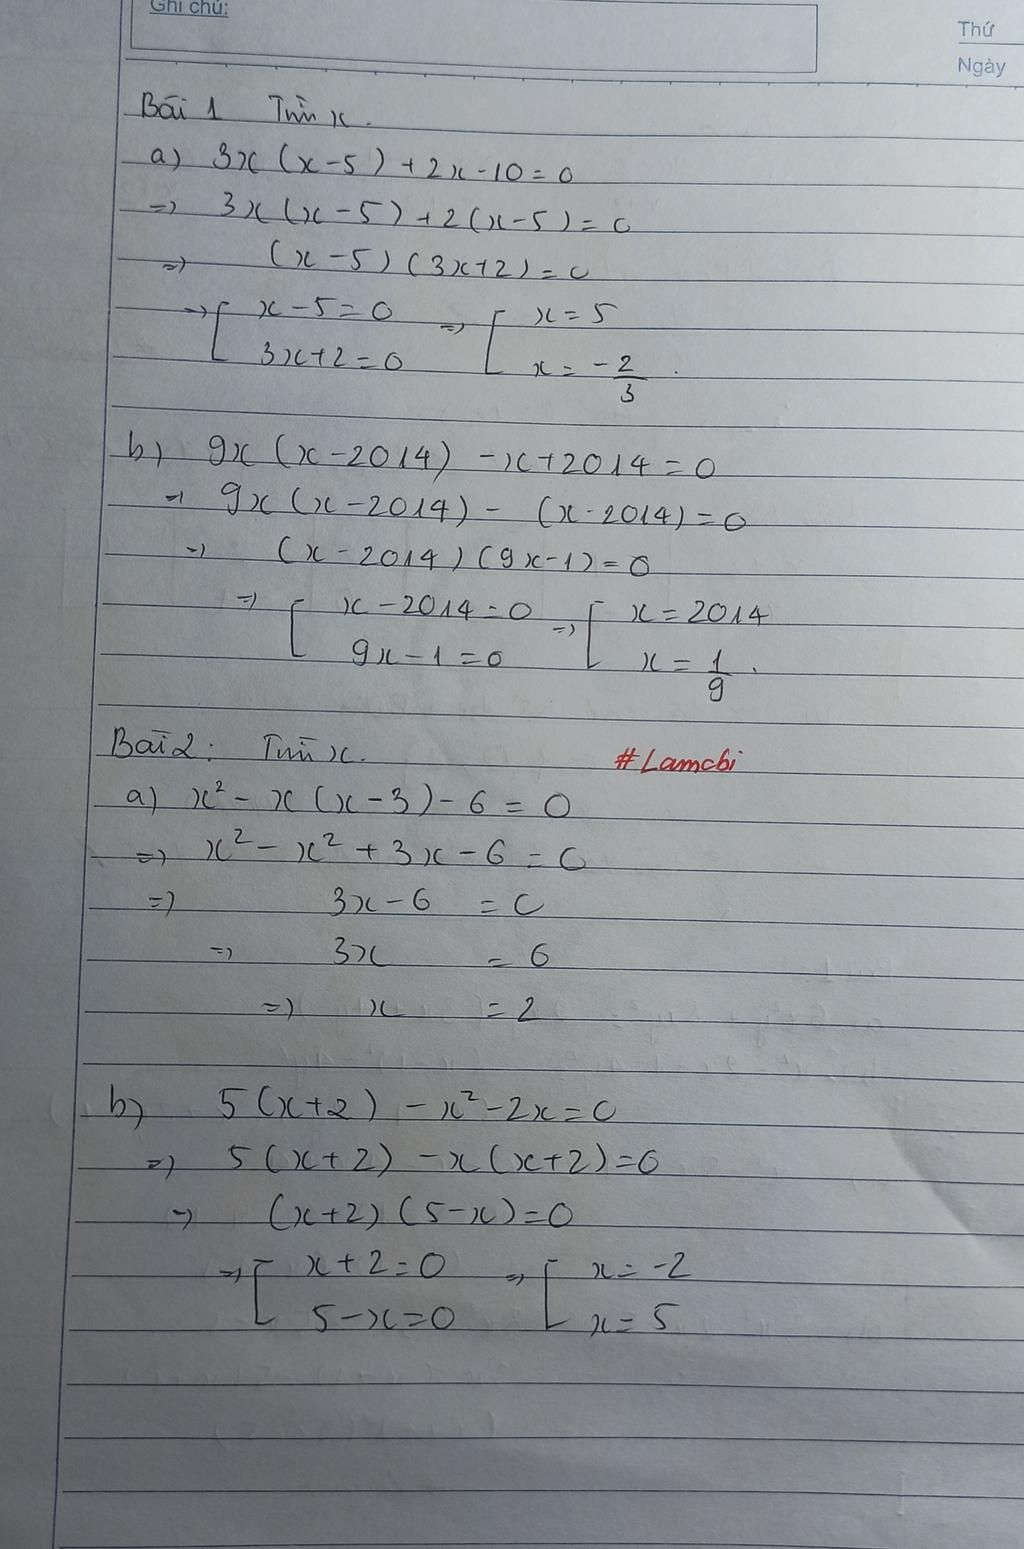 Ghi chú:
Thứ
Ngày
Bài 1 Tìm x.
a) 3x (x-5) + 2x-10 = 0
=> 3x(x-5) + 2(x-5) = 0
=> (x-5) (3x+2) = 0
=> [ x-5=0 => [ x=5
3x+2=0 x= -2/3.
b) 9x (x-2014) -x+2014=0
=> 9x(x-2014) - (x-2014)=0
=> (x-2014) (9x-1)=0
=> [ x-2014=0 => [ x=2014
9x-1=0 x=1/9.
Bài 2: Tìm x.
#Lamcbi
a) x² - x (x-3) - 6 = 0
=> x² - x² + 3x - 6 = 0
=> 3x-6 = 0
=> 3x = 6
=> x = 2
b) 5(x+2) -x²-2x=0
=> 5(x+2) -x(x+2)=0
=> (x+2) (5-x)=0
=> [ x+2=0 => [ x=-2
5-x=0 x=5